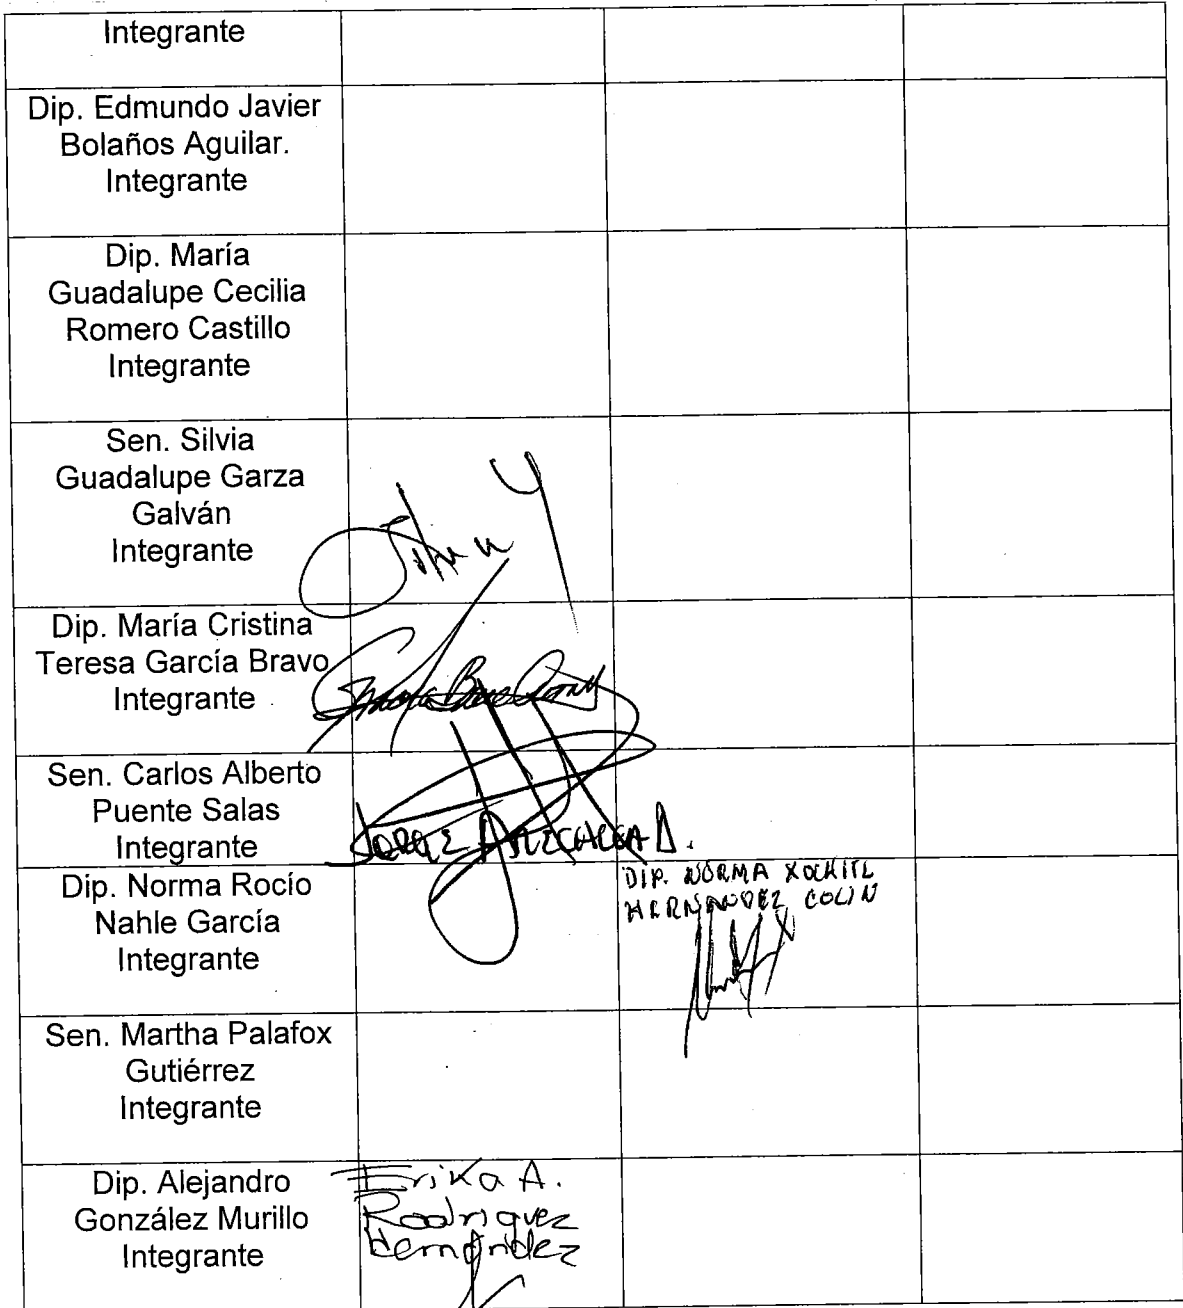 Integrante
Dip. Edmundo Javier
Bolaños Aguilar.
Integrante
Dip. María
Guadalupe Cecilia
Romero Castillo
Integrante
Sen. Silvia
Guadalupe Garza
Galván
Integrante
Dip. María Cristina
Teresa García Bravo
Integrante
Sen. Carlos Alberto
Puente Salas
Integrante
Dip. Norma Rocío
Nahle García
Integrante
DIP. NORMA XOCHITL
HERNANDEZ COLIN
Sen. Martha Palafox
Gutiérrez
Integrante
Dip. Alejandro
González Murillo
Integrante
Erika A.
Rodriguez
Hernández